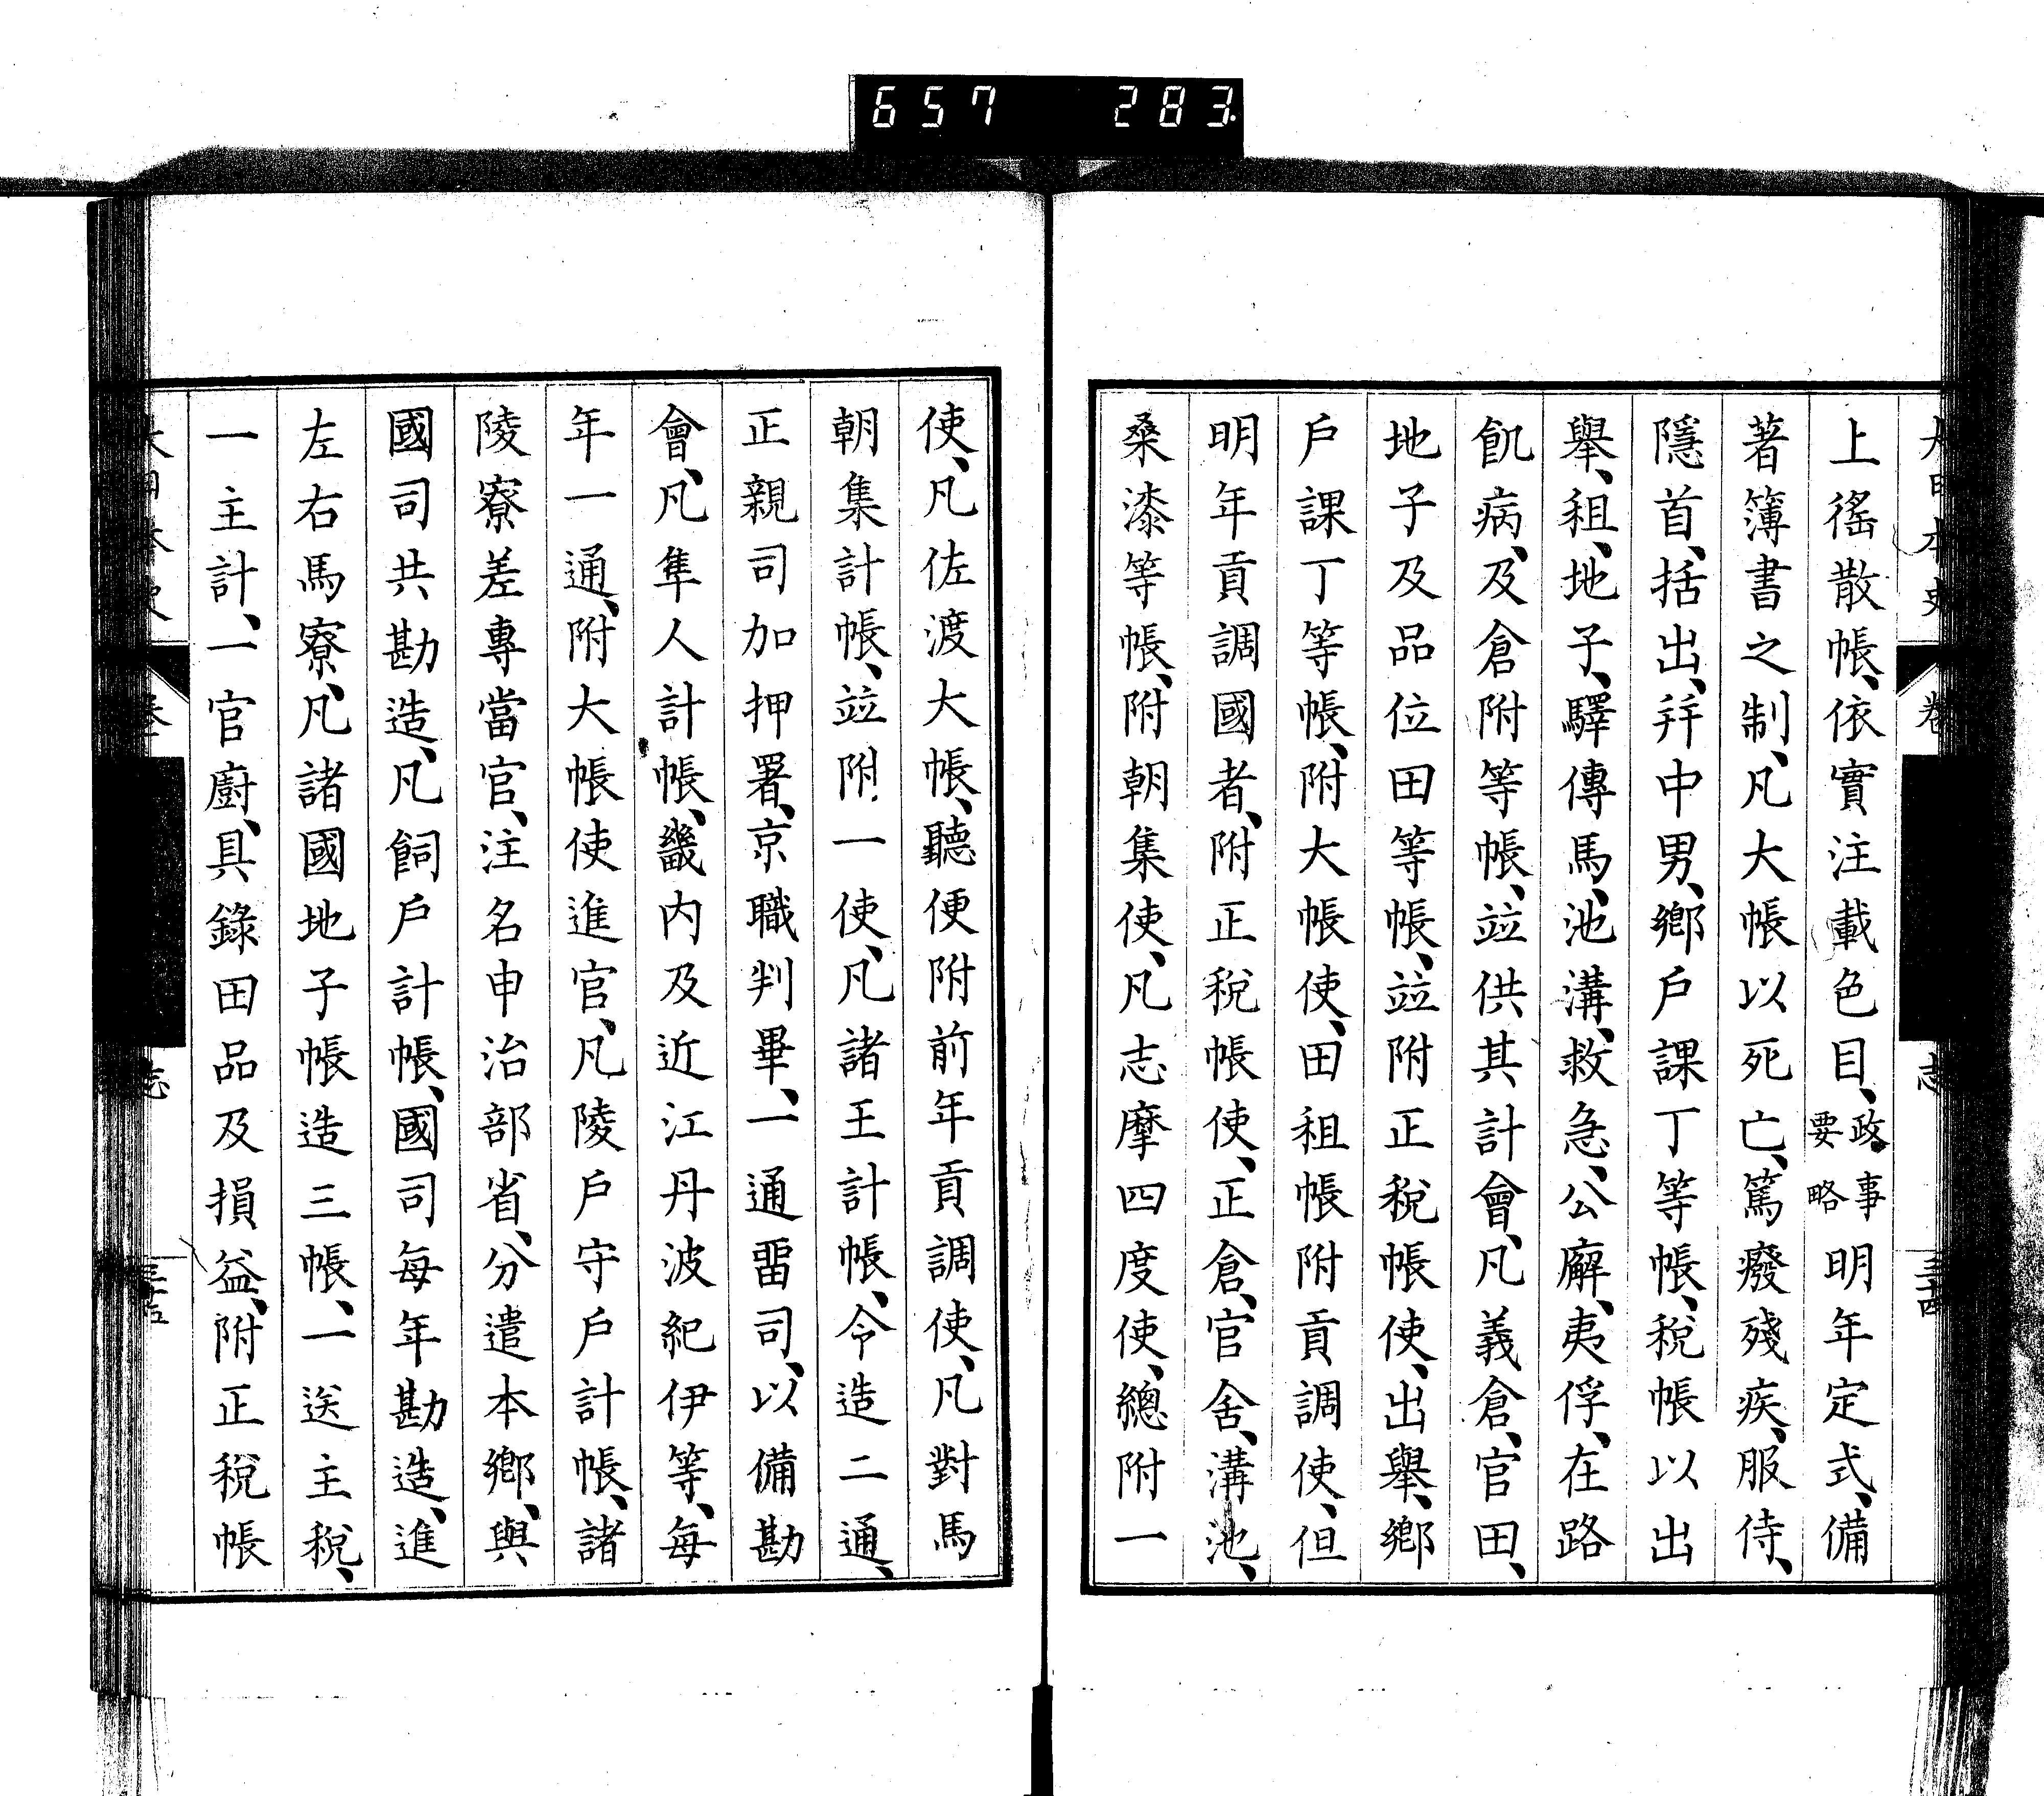 657 283
上徭散帳、依實注載色目、政事要略明年定式、備
著簿書之制、凡大帳以死亡、篤癈殘疾、服侍、
隱首、括出、幷中男、鄉戶課丁等帳、稅帳以出
舉、租、地子、驛傳馬、池溝、救急、公廨、夷俘、在路
飢病、及倉附等帳、竝供其計會、凡義倉、官田、
地子及品位田等帳、竝附正稅帳使、出舉、鄉
戶課丁等帳、附大帳使、田租帳附貢調使、但
明年貢調國者、附正稅帳使、正倉、官舍、溝池、
桑漆等帳、附朝集使、凡志摩四度使、總附一
使、凡佐渡大帳、聽便附前年貢調使、凡對馬
朝集計帳、竝附一使、凡諸王計帳、令造二通、
正親司加押署、京職判畢、一通畱司、以備勘
會、凡隼人計帳、畿內及近江丹波紀伊等、每
年一通、附大帳使進官、凡陵戶守戶計帳、諸
陵寮差專當官、注名申治部省、分遣本鄉、與
國司共勘造、凡飼戶計帳、國司每年勘造、進
左右馬寮、凡諸國地子帳造三帳、一送主稅、
一主計、一官廚、具錄田品及損益、附正稅帳